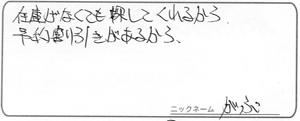 在庫がなくても探してくれるから
予約割り引きがあるから、
ニックネーム がっふぃ